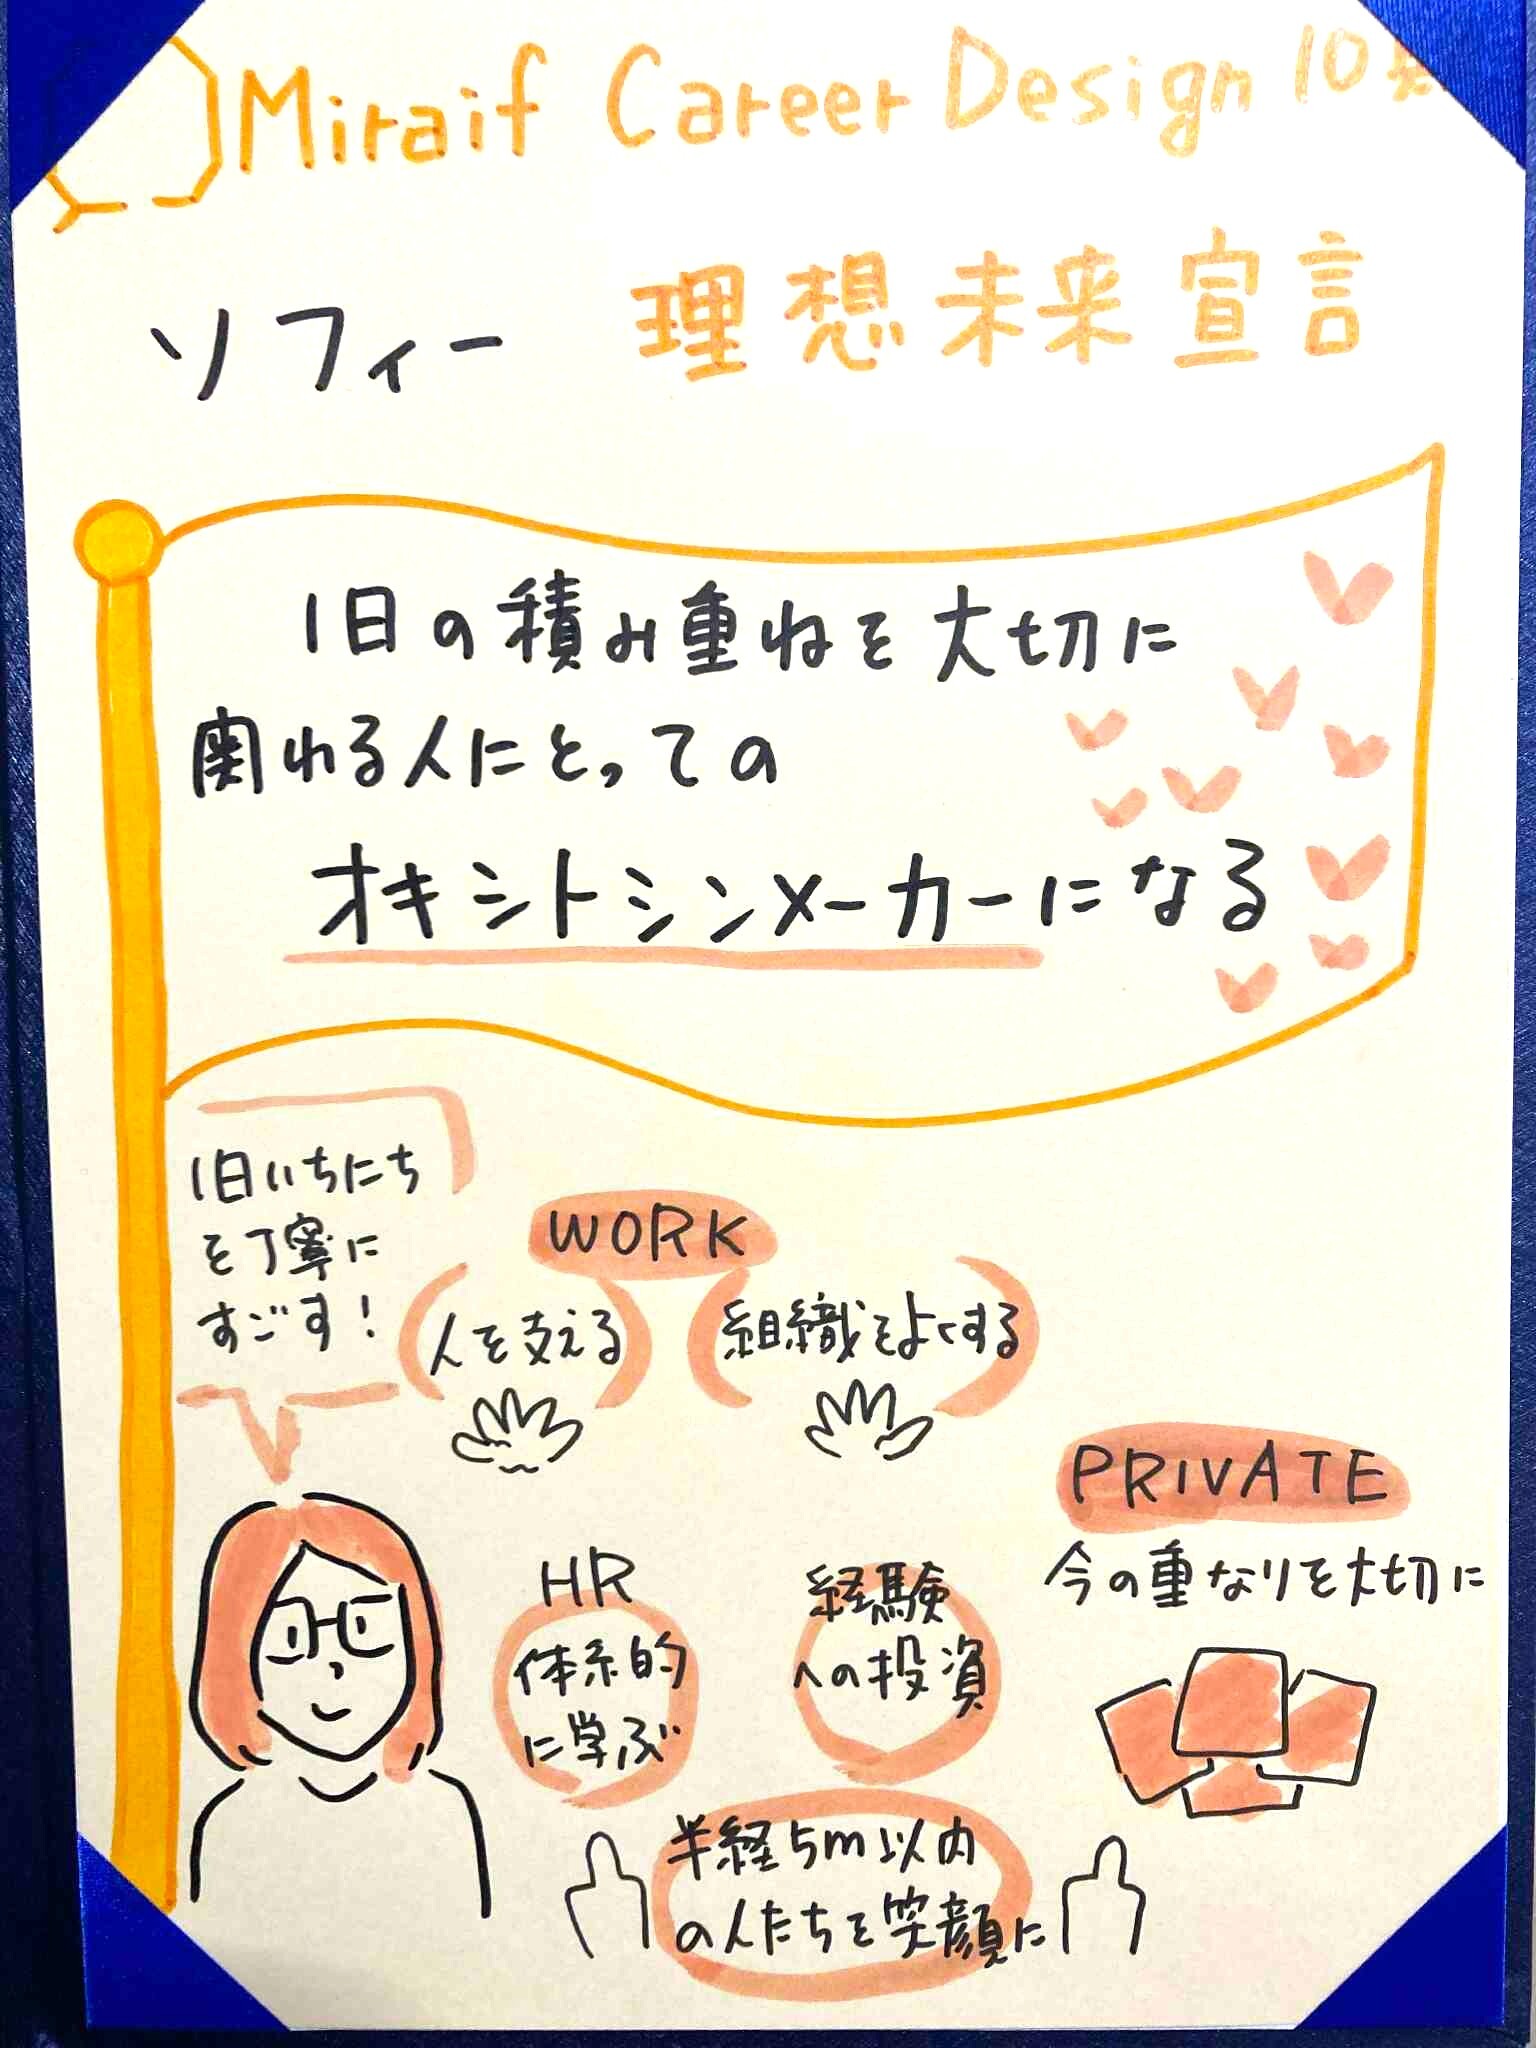 Miraif Career Design 10
ソフィー 理想未来宣言
1日の積み重ねを大切に
関れる人にとっての
オキシトシンメーカーになる
1日いちにち
を丁寧に
すごす!
WORK
人を支える
組織をよくする
HR
体系的
に学ぶ
経験
への投資
半経5m以内
の人たちを笑顔に
PRIVATE
今の重なりを大切に